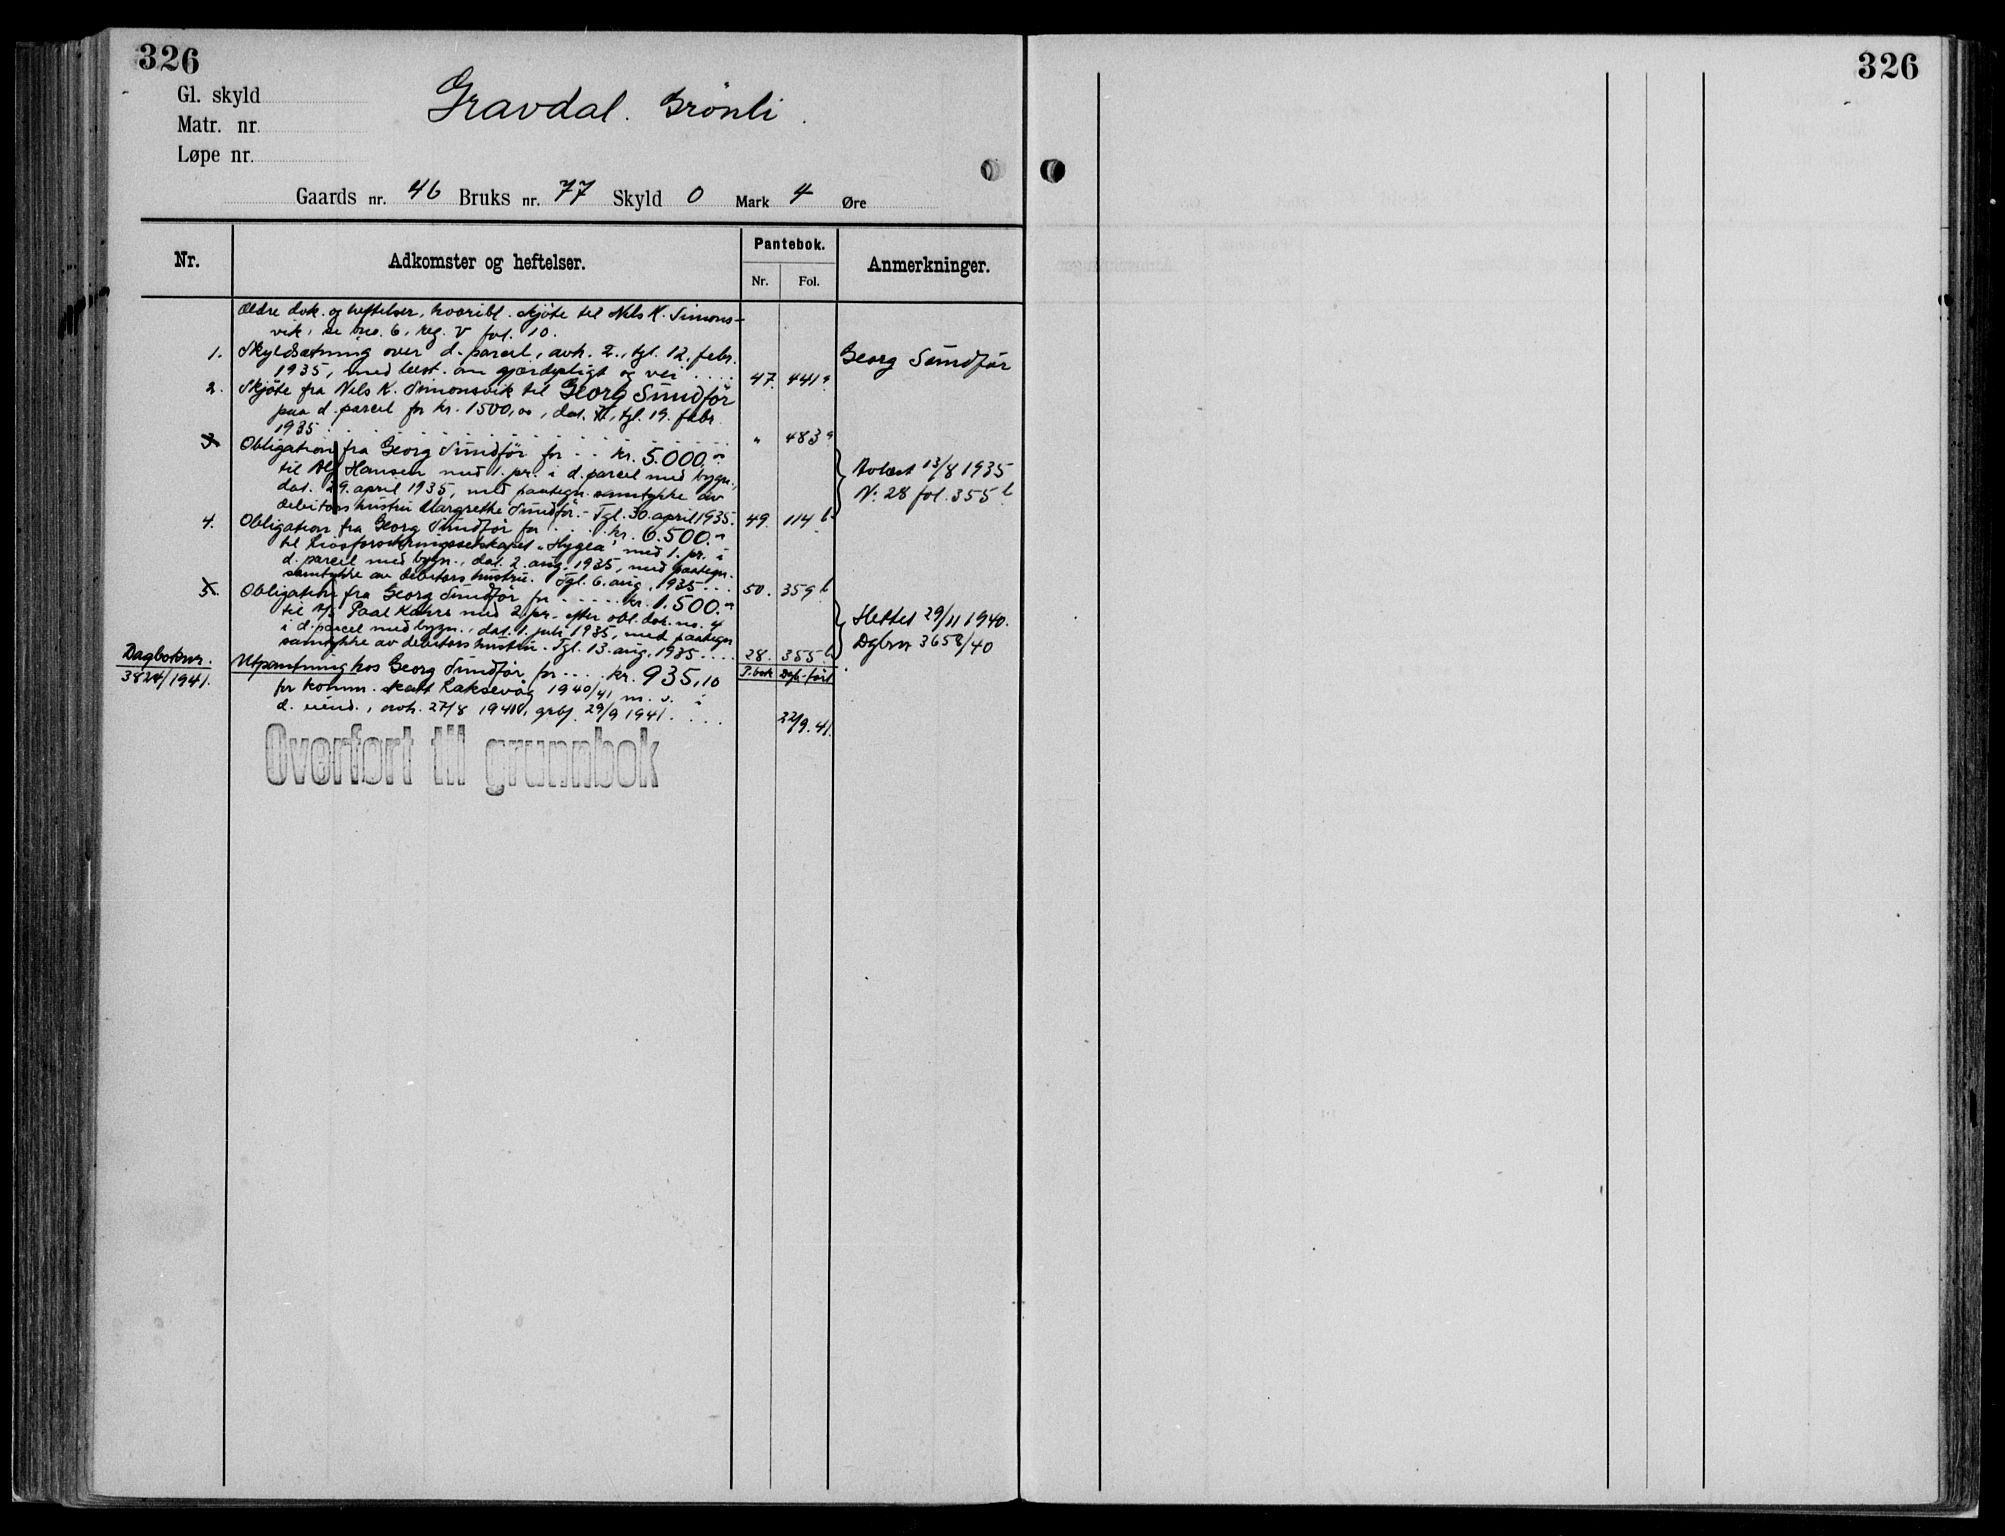 326
Gl. skyld
Matr. nr.
Løpe nr.
Gravdal. Grönli.
Gaards nr. 46 Bruks nr. 77 Skyld 0 Mark 4 Øre
Nr. Adkomster og heftelser. Pantebok. Anmerkninger.
Nr. Fol.
Ældre dok. og heftelser, hvoribl. skjöte til Nils K. Simons-
vik, se bno. 6, reg. V fol. 10.
1. Skyldsætning over d. parcel, avh. 2., tgl. 12. febr.
1935, med best. om gjærdepligt og vei .... 47. 441a
Georg Sundför
2. Skjöte fra Nils K. Simonsvik til Georg Sundför
paa d. parcel for kr. 1500,00, dat. , tgl. 19. febr.
1935 ........ " 483a
3. Obligation fra Georg Sundför for .. kr. 5.000,"
til Alf Hansen med 1. pr. i d. parcel med bygn.,
dat. 29. april 1935, med paategn. samtykke av
debitors hustru Margrethe Sundför. - Tgl. 30. april 1935. 49. 114b
Avlæst 13/8 1935
N: 28 fol. 355b
4. Obligation fra Georg Sundför for .... kr. 6.500."
til Livsforsikringsselskapet "Hygea" med 1. pr. i
d. parcel med bygn., dat. 2. aug. 1935, med paategn.
samtykke av debitors hustru. Tgl. 6. aug. 1935 ... 50. 359b
5. Obligation fra Georg Sundför for ..... kr. 1.500."
til A/S Paal Kahrs med 2. pr. efter obl. dok. no. 4
i d. parcel med bygn., dat. 1. juli 1935, med paategn.
samtykke av debitors hustru. Tgl. 13. aug. 1935 .... 28. 355b
Slettet 29/11 1940.
Dgbnr 3658/40
Dagboknr.
3824/1941.
Utpantning hos Georg Sundför for .... kr. 935,10
P.bok Dgb.-ført
for komm. skatt Laksevåg 1940/41 m. v. i
d. eiend., avh. 27/8 1941, grbf. 29/9 1941. .... 22/9. 41.
Overført til grunnbok
326